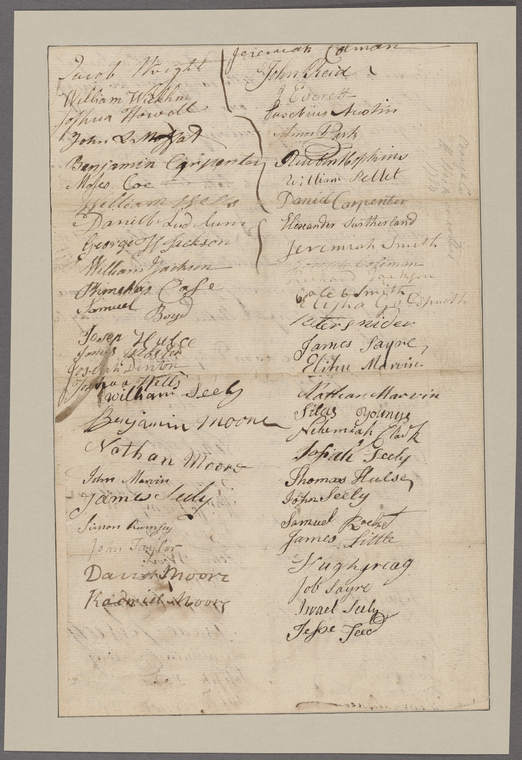 Jacob Wright
William Wickham
Joshua Howell
John L Moffat
Benjamin Carpenter
Moses Coe
William Wels
Daniel Ludlum
George W Jackson
William Jackson
Case
Samuel Boyd
Joseph Hulse
James
Joseph Denton
Joshua Wells
William Seely
Benjamin Moore
Nathan Moore
John Marvin
James Seely
Simon Rumsey
John Taylor
David Moore
Moore
Jeremiah Colman
John Reid
J Everett
Eusebius Austin
Amos Park
Reuben Hopkins
William Pellet
Daniel Carpenter
Alexander Sutherland
Jeremiah Smith
Coleman
Jackson
Caleb Smith
Elisha
Peter Snider
James Sayre
Elihu Marvin
Nathan Marvin
Silas Youngs
Nehemiah Clark
Josiah Seely
Thomas Hulse
John Seely
Samuel
James Little
Hugh gragg
Job Sayre
Israel Seely
Jesse